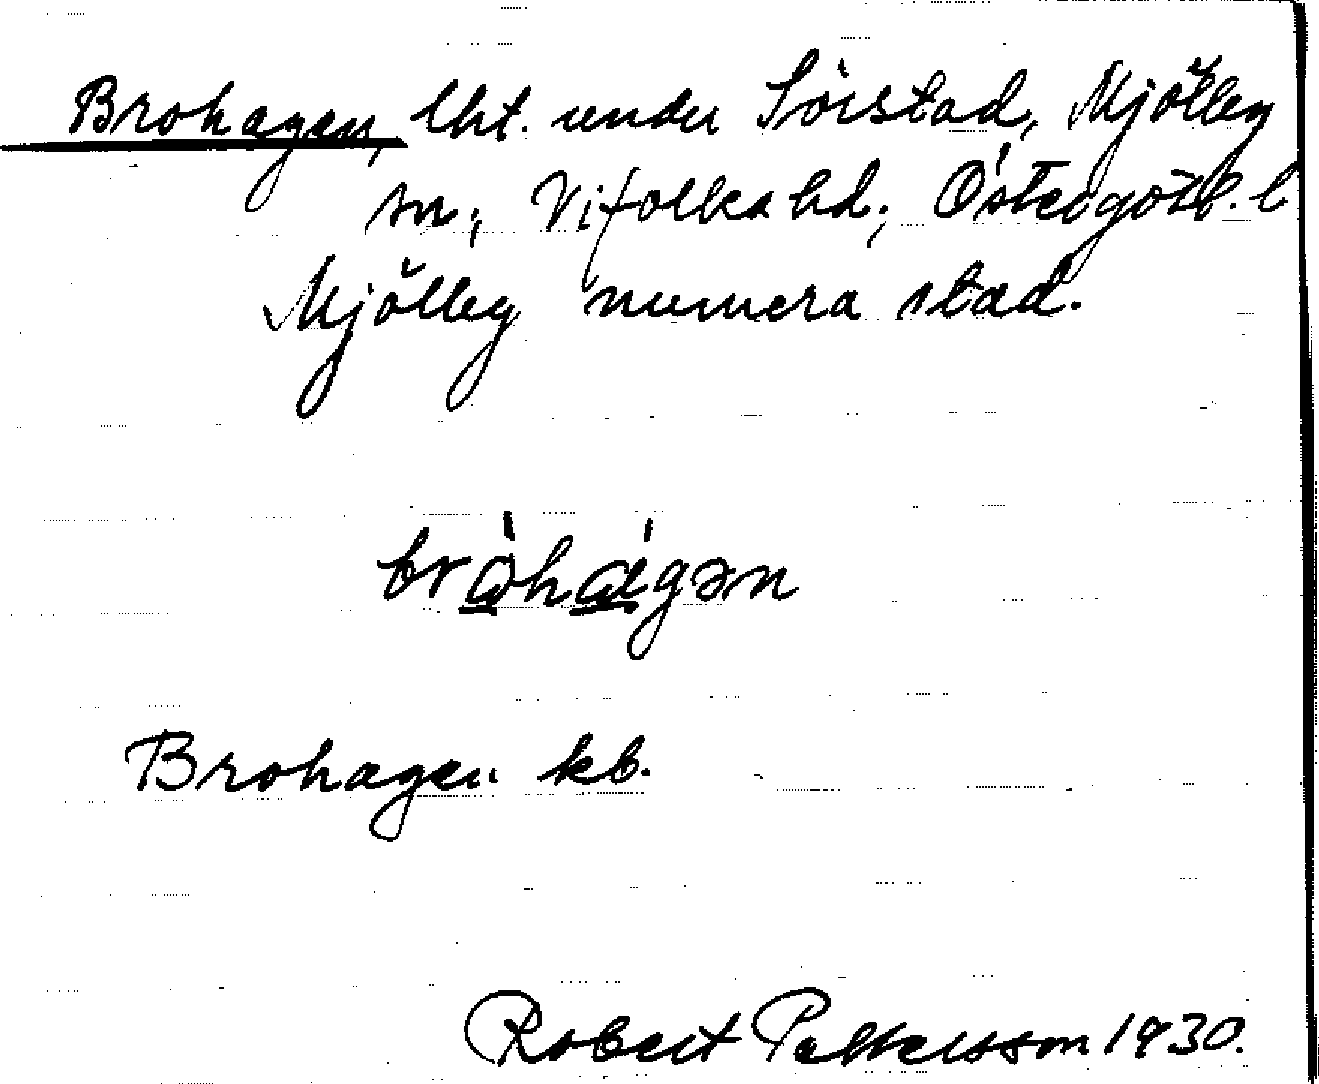 Brohagen, lht. under Sörstad, Mjölby
sn; Vifolka hd; Östergötl. l
Mjölby numera stad.
bràhágən
Brohagen kb.
Robert Pettersson 1930.